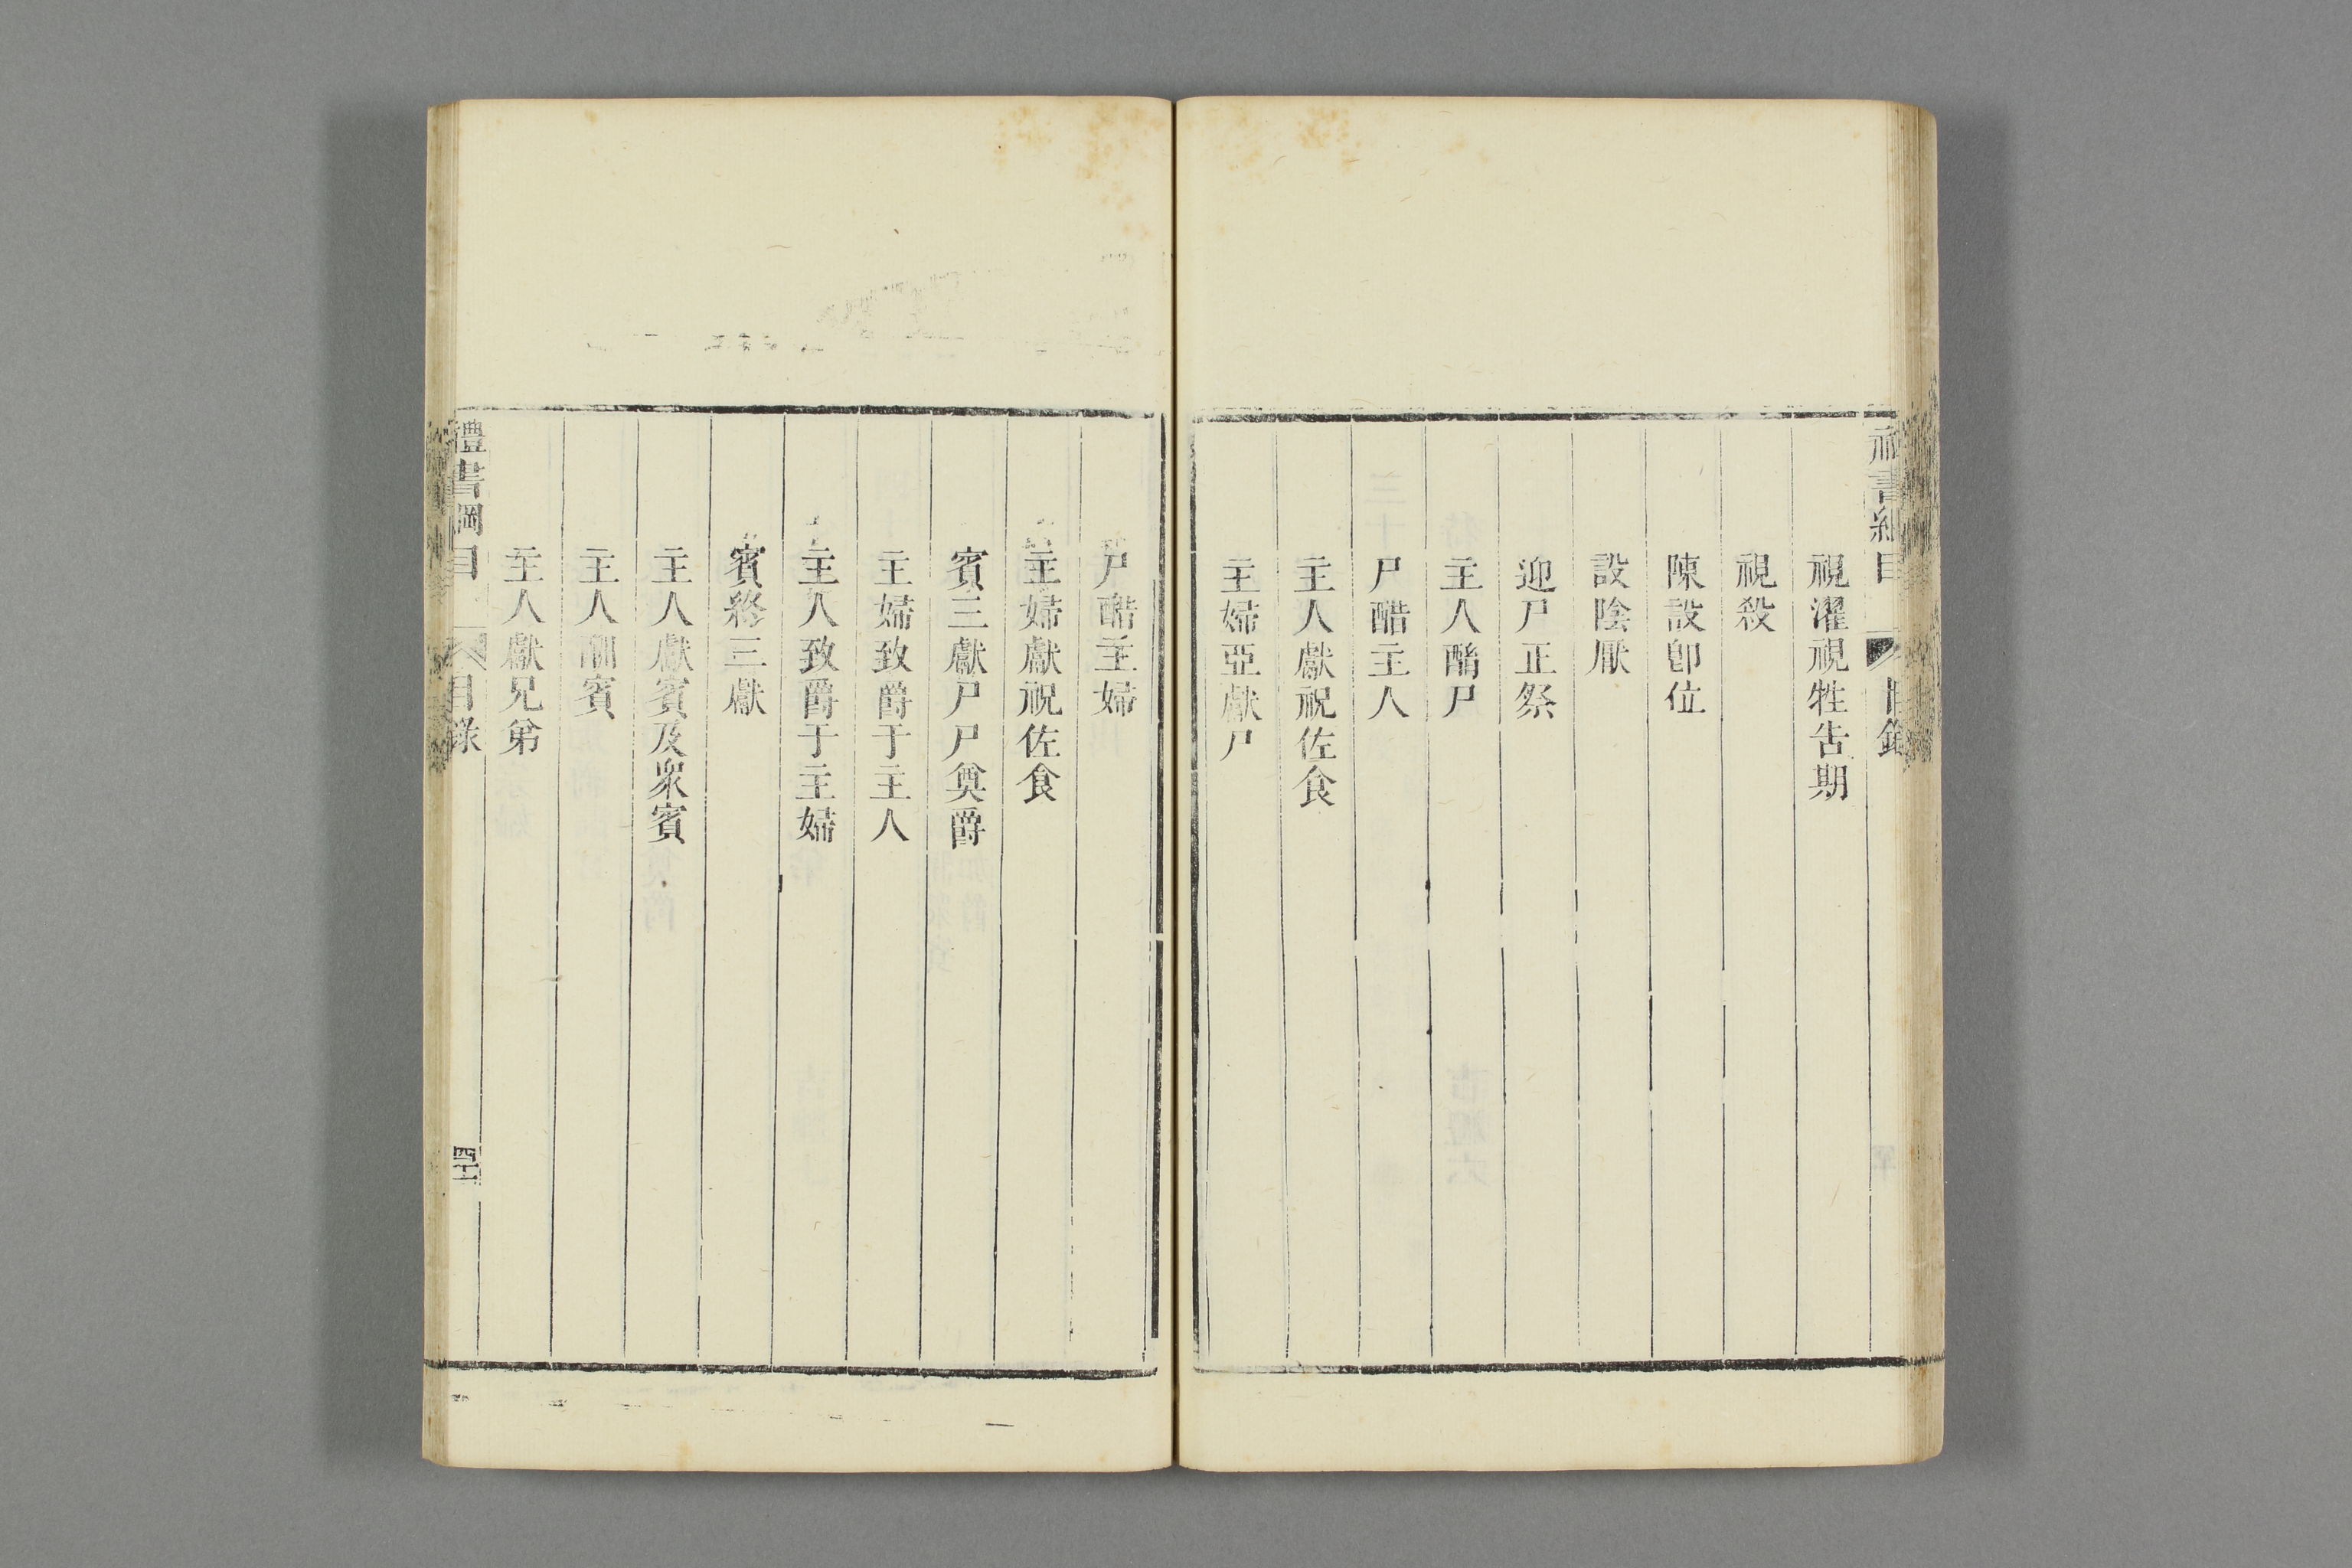 視濯視牲告期
視殺
陳設卽位
設陰厭
迎尸正祭
主人酳尸
尸酢主人
主人獻祝佐食
主婦亞獻尸
尸酢主婦
主婦獻祝佐食
賓三獻尸尸奠爵
主婦致爵于主人
主人致爵于主婦
賓終三獻
主人獻賓及衆賓
主人酬賓
主人獻兄弟
禮書綱目
目錄